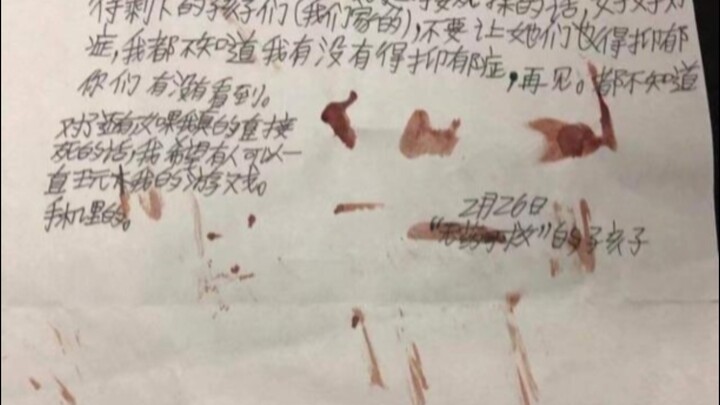 得剩下的孩子们(我们家的),不要让她们也得抑郁
症,我都不知道我有没有得抑郁症,再见。都不知道
你们有没有看到。
对了还有如果我真的直接
死的话,我希望有人可以一
直玩我的游戏。
手机里的。
2月26日
的孩子